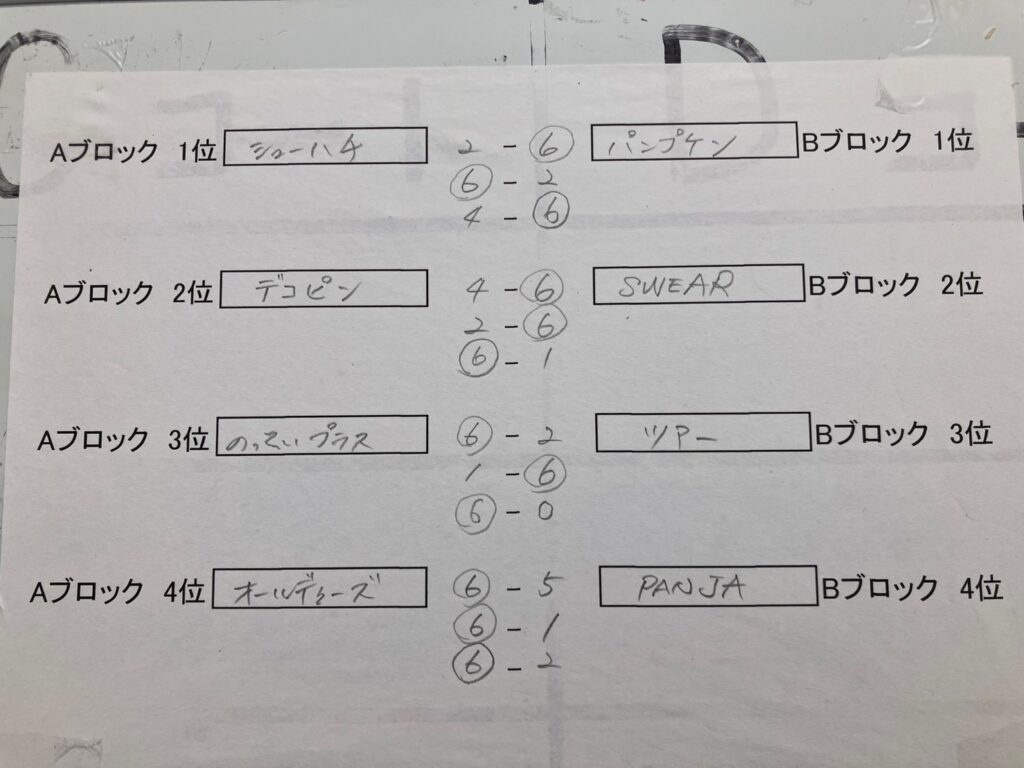 Aブロック 1位 シューハチ 2 - 6 パンプケン Bブロック 1位
6 - 2
4 - 6
Aブロック 2位 デコピン 4 - 6 SWEAR Bブロック 2位
2 - 6
6 - 1
Aブロック 3位 プラス 6 - 2 ツアー Bブロック 3位
1 - 6
6 - 0
Aブロック 4位 オールディーズ 6 - 5 PANJA Bブロック 4位
6 - 1
6 - 2